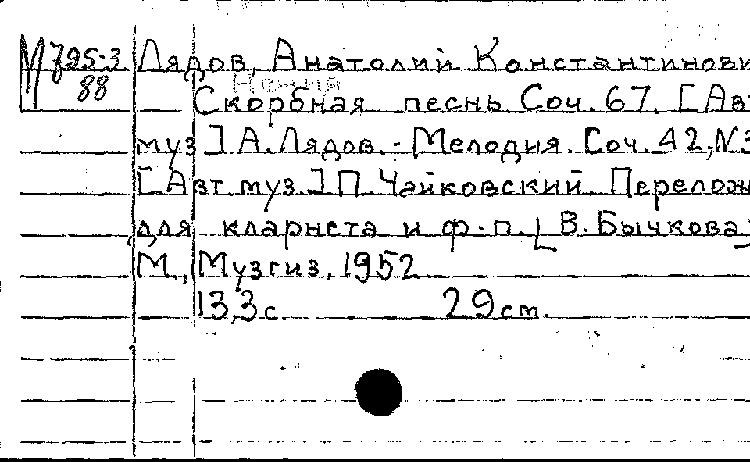 М 795-3 Лядов, Анатолий Константинови
88 Скорбная песнь Соч. 67. [Авт
муз] А. Лядов. - Мелодия. Соч. 42, №3
[Авт муз.] П. Чайковский. Перелож
для кларнета и ф.-п. [В. Бычкова]
М., Музгиз, 1952
13,3 с. 29 ст.